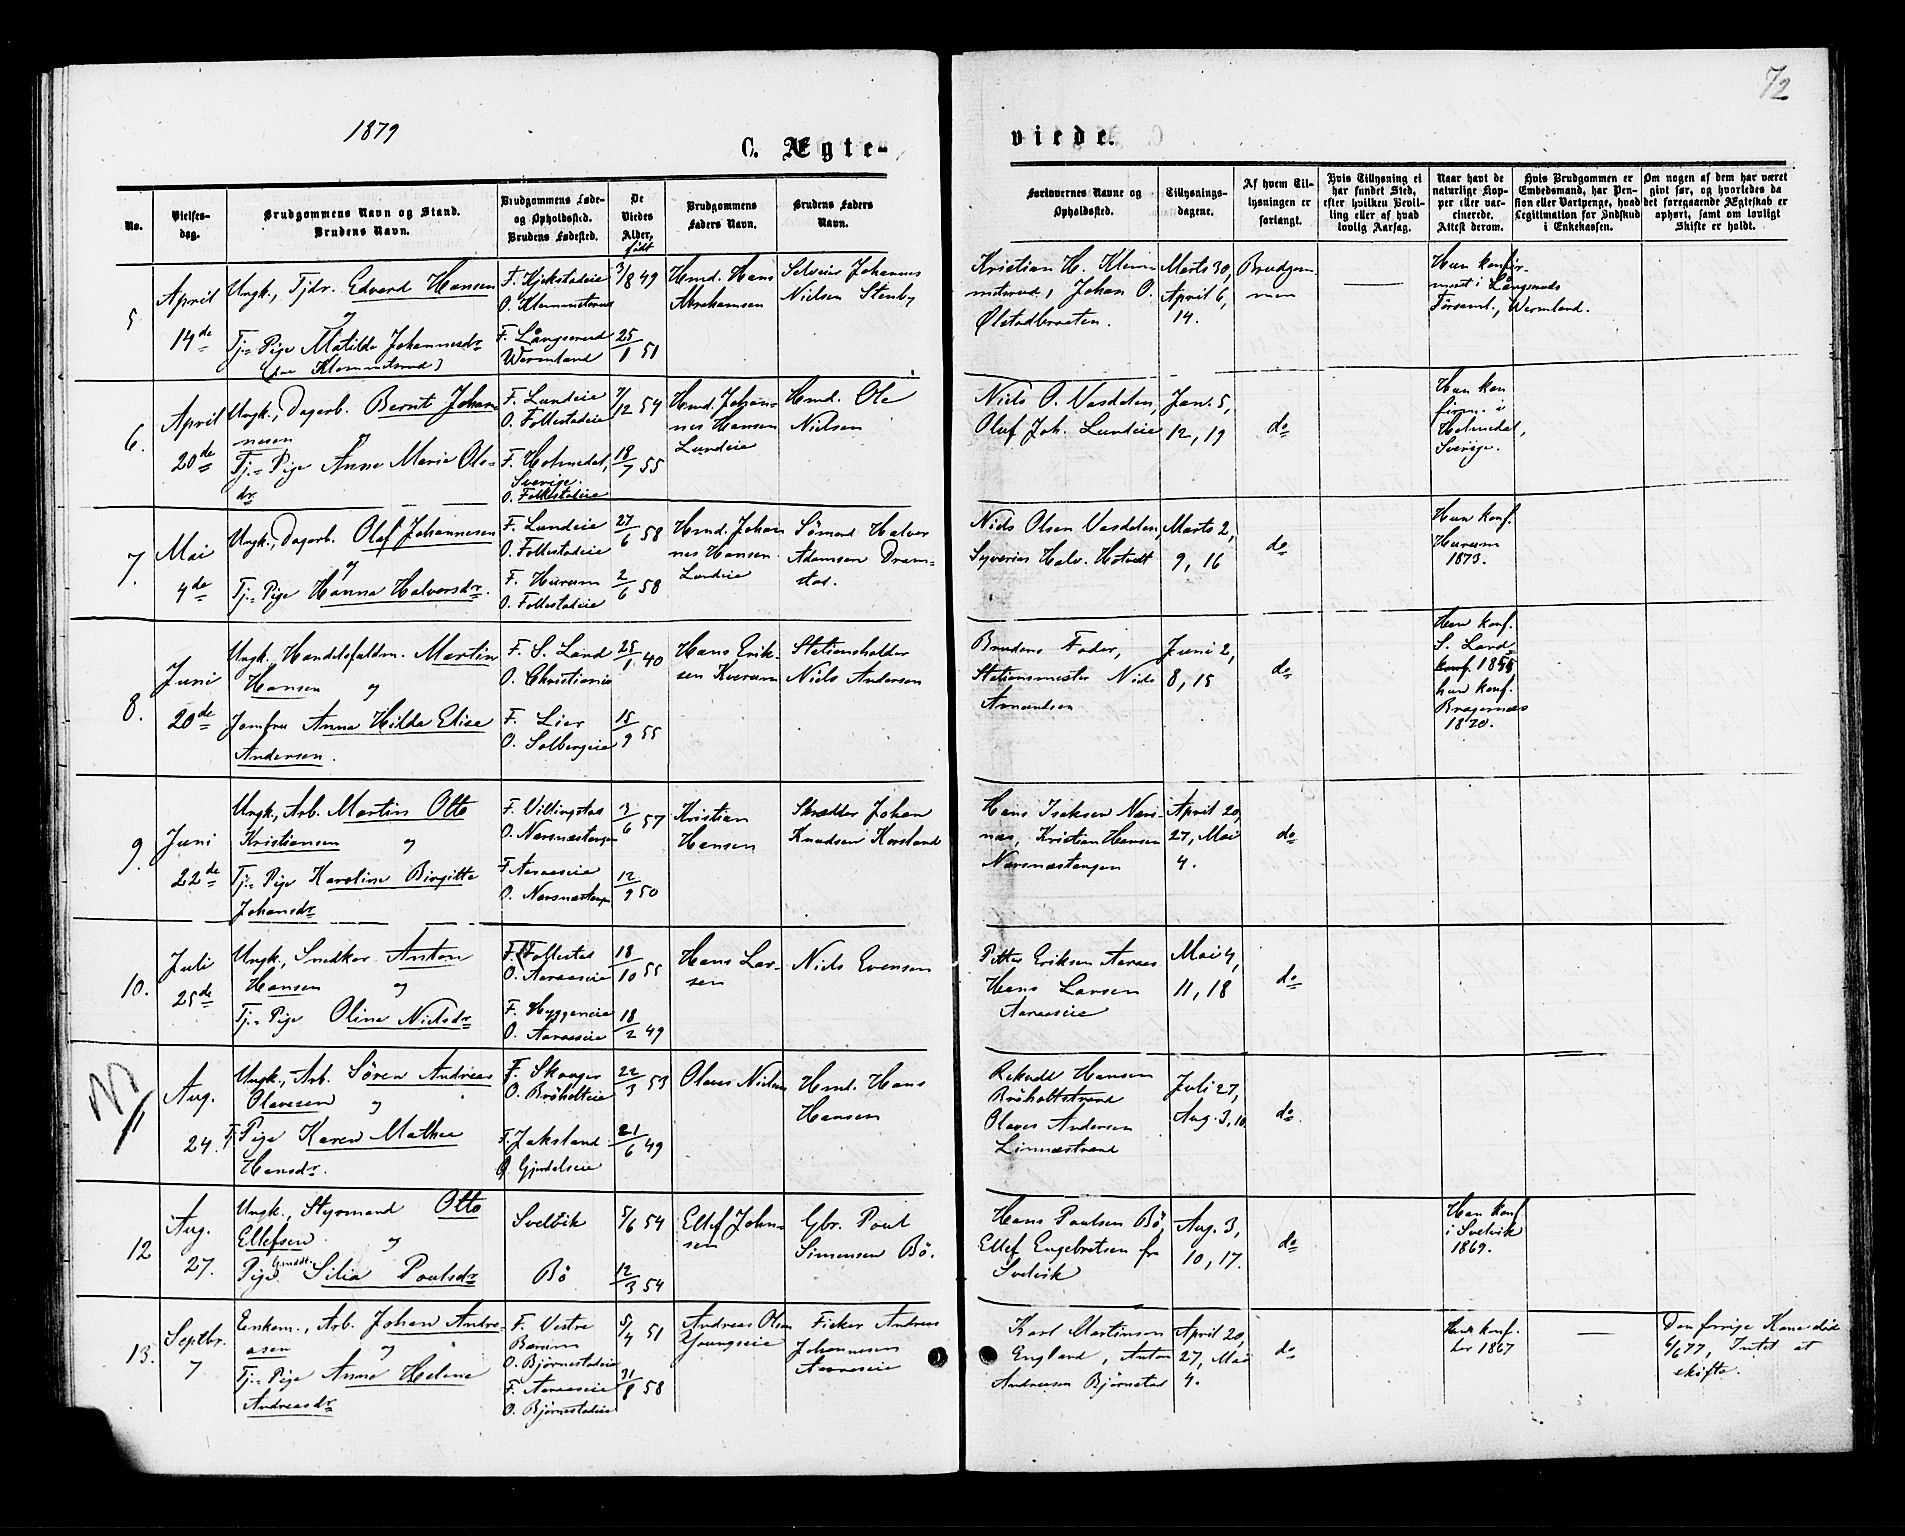 72
1879
C. Ægte-
viede.
No.
Vielses-
dag.
Brudgommens Navn og Stand.
Brudens Navn.
Brudgommens Føde-
og Opholdssted.
Brudens Fødested.
De
Viedes
Alder,
født
Brudgommens
Faders Navn.
Brudens Faders
Navn.
Forlovernes Navne og
Opholdssted.
Tillysnings-
dagene.
Af hvem Til-
lysningen er
forlangt.
Hvis Tillysning ei
har fundet Sted,
efter hvilken Bevil-
ling eller af hvad
lovlig Aarsag.
Naar havt de
naturlige Kop-
per eller vac-
cinerede.
Attest derom.
Hvis Brudgommen er
Embedsmand, har Pen-
sion eller Vartpenge, hvad
Legitimation for Indskud
i Enkekassen.
Om nogen af dem har været
gift før, og hvorledes da
det foregaaende Ægteskab er
ophørt, samt om lovligt
Skifte er holdt.
5
April
14de
Ungk., Tjdr. Edvard Hansen
og
Tj.- Pige Matilda Johannesdr
F. Kjekstadeie
O. Klemmetsrud
F. Långserud
Wermland
3/8 49
25/1 51
Hmd. Hans
Abrahamsen
Selveier Johannes
Nielsen Stenby
Kristian H. Klem-
metsrud, Johan O.
Ølstadbraaten.
Marts 30,
April 6,
14.
Brudgom-
men
Hun konfir-
meret i Långseruds
Församl., Wermland.
6.
April
20de
Ungk., Dagarb. Bernt Johan-
nesen og
Tj.- Pige Anne Marie Ols-
dr
F. Lundeie
O. Follestadeie
F. Holmedal,
Sverige.
O. Follestadeie
7/12 54
18/7 55
Hmd. Johan-
nes Hansen
Lundeie
Hmd. Ole
Nielsen
Niels O. Vasdalen,
Oluf Joh. Lundeie
Jan. 5,
12, 19
do
Hun kon
firm. i
Holmedal,
Sverige.
7.
Mai
4de
Ungk., Dagarb. Olaf Johannesen
og
Tj.- Pige Hanna Halvorsdr.
F. Lundeie
O. Follestadeie
F. Hurum
O. Follestadeie
27/6 58
2/6 58
Hmd. Johan
nes Hansen
Lundeie
Sömand Halvor
Adamsen Dram-
stad.
Niels Olsen Vasdalen,
Syverin Halv. Hotvedt
Marts 2,
9, 16
do
Hun konf.
Hurum
1873.
8.
Juni
20de
Ungk. Handelsfuldm. Martin
Hansen og
Jomfru Anna Hilda Elise
Andersen.
F. S. Land
O. Christiania
F. Lier
O. Solbergeie
25/1 40
15/9 55
Hans Erik-
sen Kverum
Stationsholder
Niels Andersen
Brudens Fader,
Stationsmester Niels
Juni 2,
8, 15
do
Han konf.
S. Land
konf. 1855
hun konf.
Bragernæs
1870.
9.
Juni
22de
Ungk., Arb. Martin Otto
Kristiansen og
Tj.- Pige Karoline Birgitte
Johansdr
F. Villingstad
O. Narsnæstangen
F. Aaraaseie
O. Narsnæstangen
3/6 57
12/9 50
Kristian
Hansen
Skrædder Johan
Knudsen Korslund
Hans Isaksen Nars-
næs, Kristian Hansen
Narsnæstangen
April 20,
27, Mai
4.
do
10.
Juli
25de
Ungk., Snedker Anton
Hansen og
Tj.- Pige Oline Nielsdr
F. Follestad
O. Aaraaseie
F. Hyggeneie
O. Aaraaseie
18/10 55
18/2 49
Hans Lar-
sen
Niels Evensen
Petter Eriksen Aaraas
Hans Larsen
Aaraaseie
Mai 4,
11, 18
do
11
Aug.
24.
Ungk., Arb. Sören Andreas
Olavesen og
T. Pige Karen Mathea
Hansdr.
F. Skoger
O. Bröholteie
F. Jaksland
O. Gjerdalseie
22/3 53
21/6 49
Olaves Nielsen
Hmd. Hans
Hansen
Hansen
Bröholtstrand
Olaves Andersen
Linnæstrand
Juli 27,
Aug. 3, 10
do.
12
Aug.
27.
Ungk., Styrmand Otto
Ellefsen og
Pige Silia Poulsdr
Svelvik
Bö
5/6 54
12/3 54
Ellef John-
sen
Gbr. Poul
Simensen Bö.
Hans Poulsen Bö,
Ellef Engebretsen fr
Svelvik
Aug. 3,
10, 17.
do
Han konf
i Svelvik
1869.
13.
Septbr.
7
Enkem., Arb. Johan Andre-
asen og
Tj.- Pige Anne Helene
Andreasdr
F. Vestre
Bærum
O. Bjørnestadeie
F. Aaraaseie
O. Bjørnestadeie
5/4 51
31/8 58
Andreas Olsen
Youngseie
Fisker Andreas
Johannesen
Aaraaseie
Karl Martinsen
England, Anton
Andresen Bjørnstad
April 20,
27, Mai
4.
do
Han konf.
her 1867
Den forrige Kone död
6/6 77, Intet at
skifte.